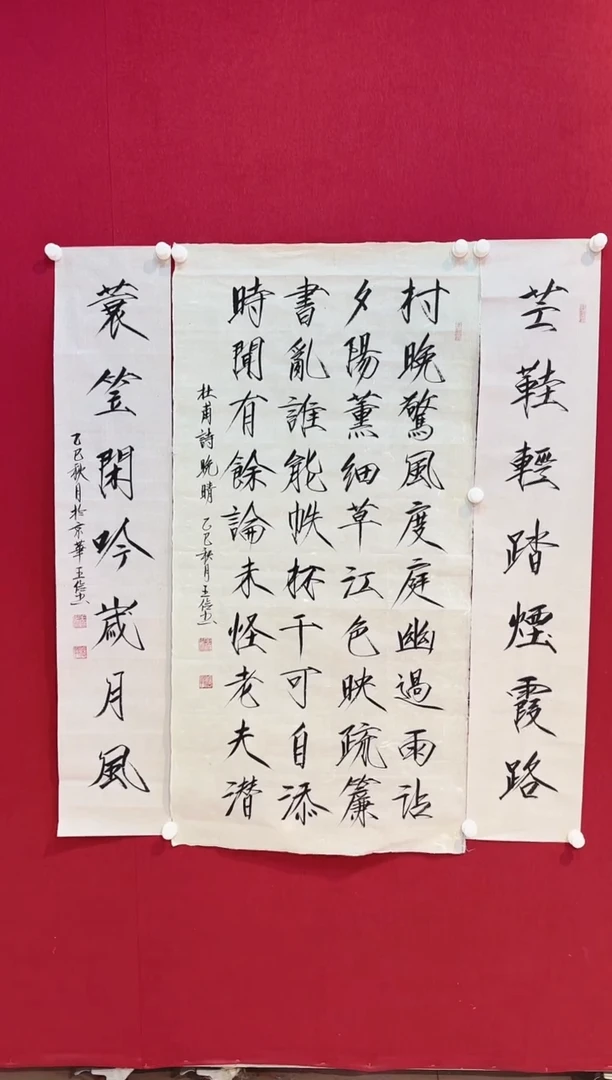 芒鞋輕踏煙霞路
村晚驚風度庭幽過雨沾
夕陽薰細草江色映疏簾
書亂誰能帙杯干可自添
時聞有餘論未怪老夫潛
杜甫詩晚晴 乙巳秋月 王
蓑笠閑吟歲月風
乙巳秋月於京華王